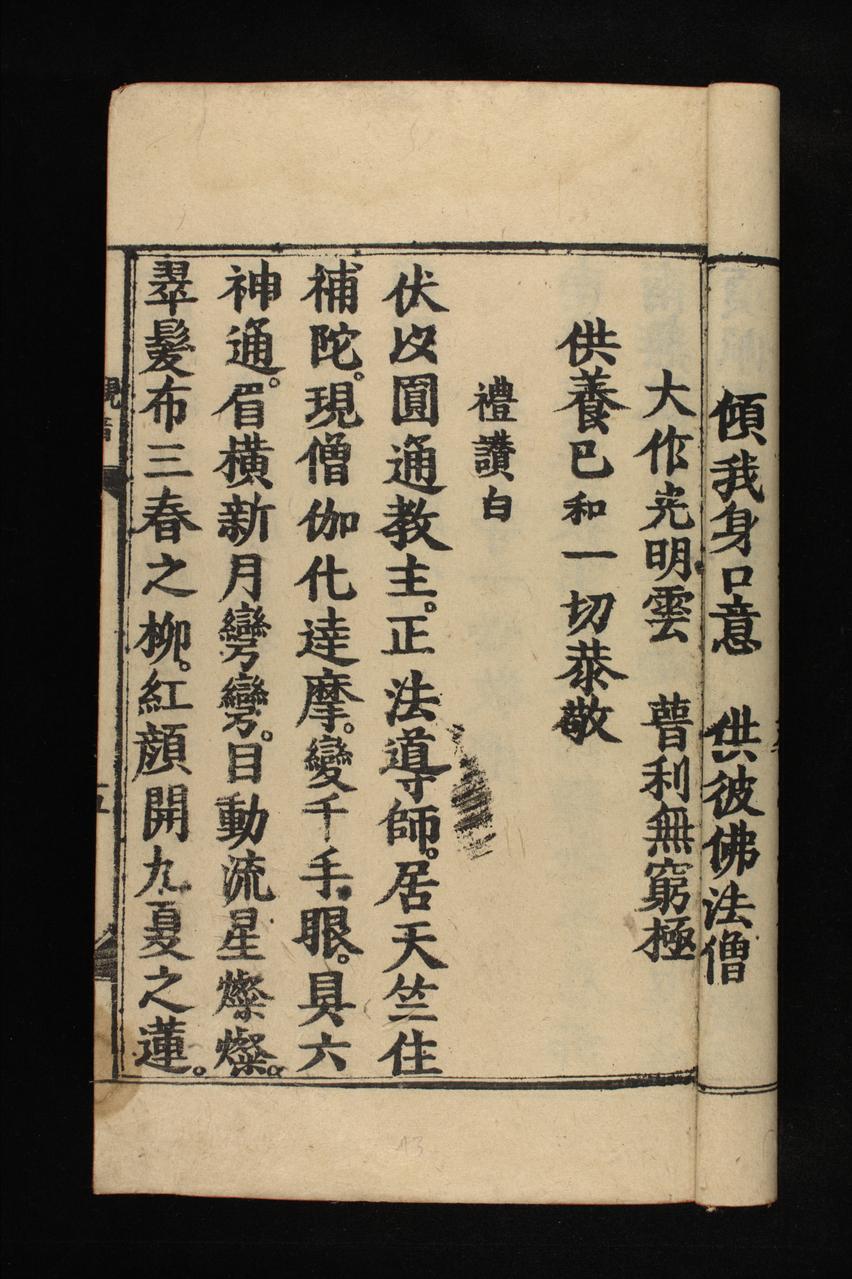 傾我身口意　供彼佛法僧
大作光明雲　普利無窮極
供養已和一切恭敬
禮讚白
伏以圓通教主。正法導師。居天竺住
補陀。現僧伽化達摩。變千手眼。具六
神通。眉橫新月彎彎。目動流星燦燦。
翠髮布三春之柳。紅顔開九夏之蓮。
觀音
五